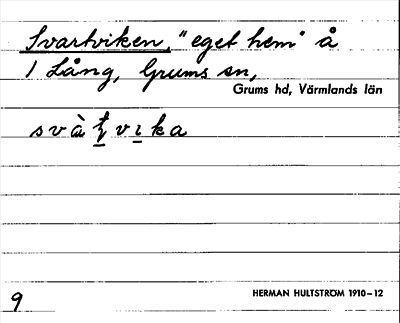 Svartviken, "eget hem" å
1 Lång, Grums sn,
Grums hd, Värmlands län
9
HERMAN HULTSTRÖM 1910–12